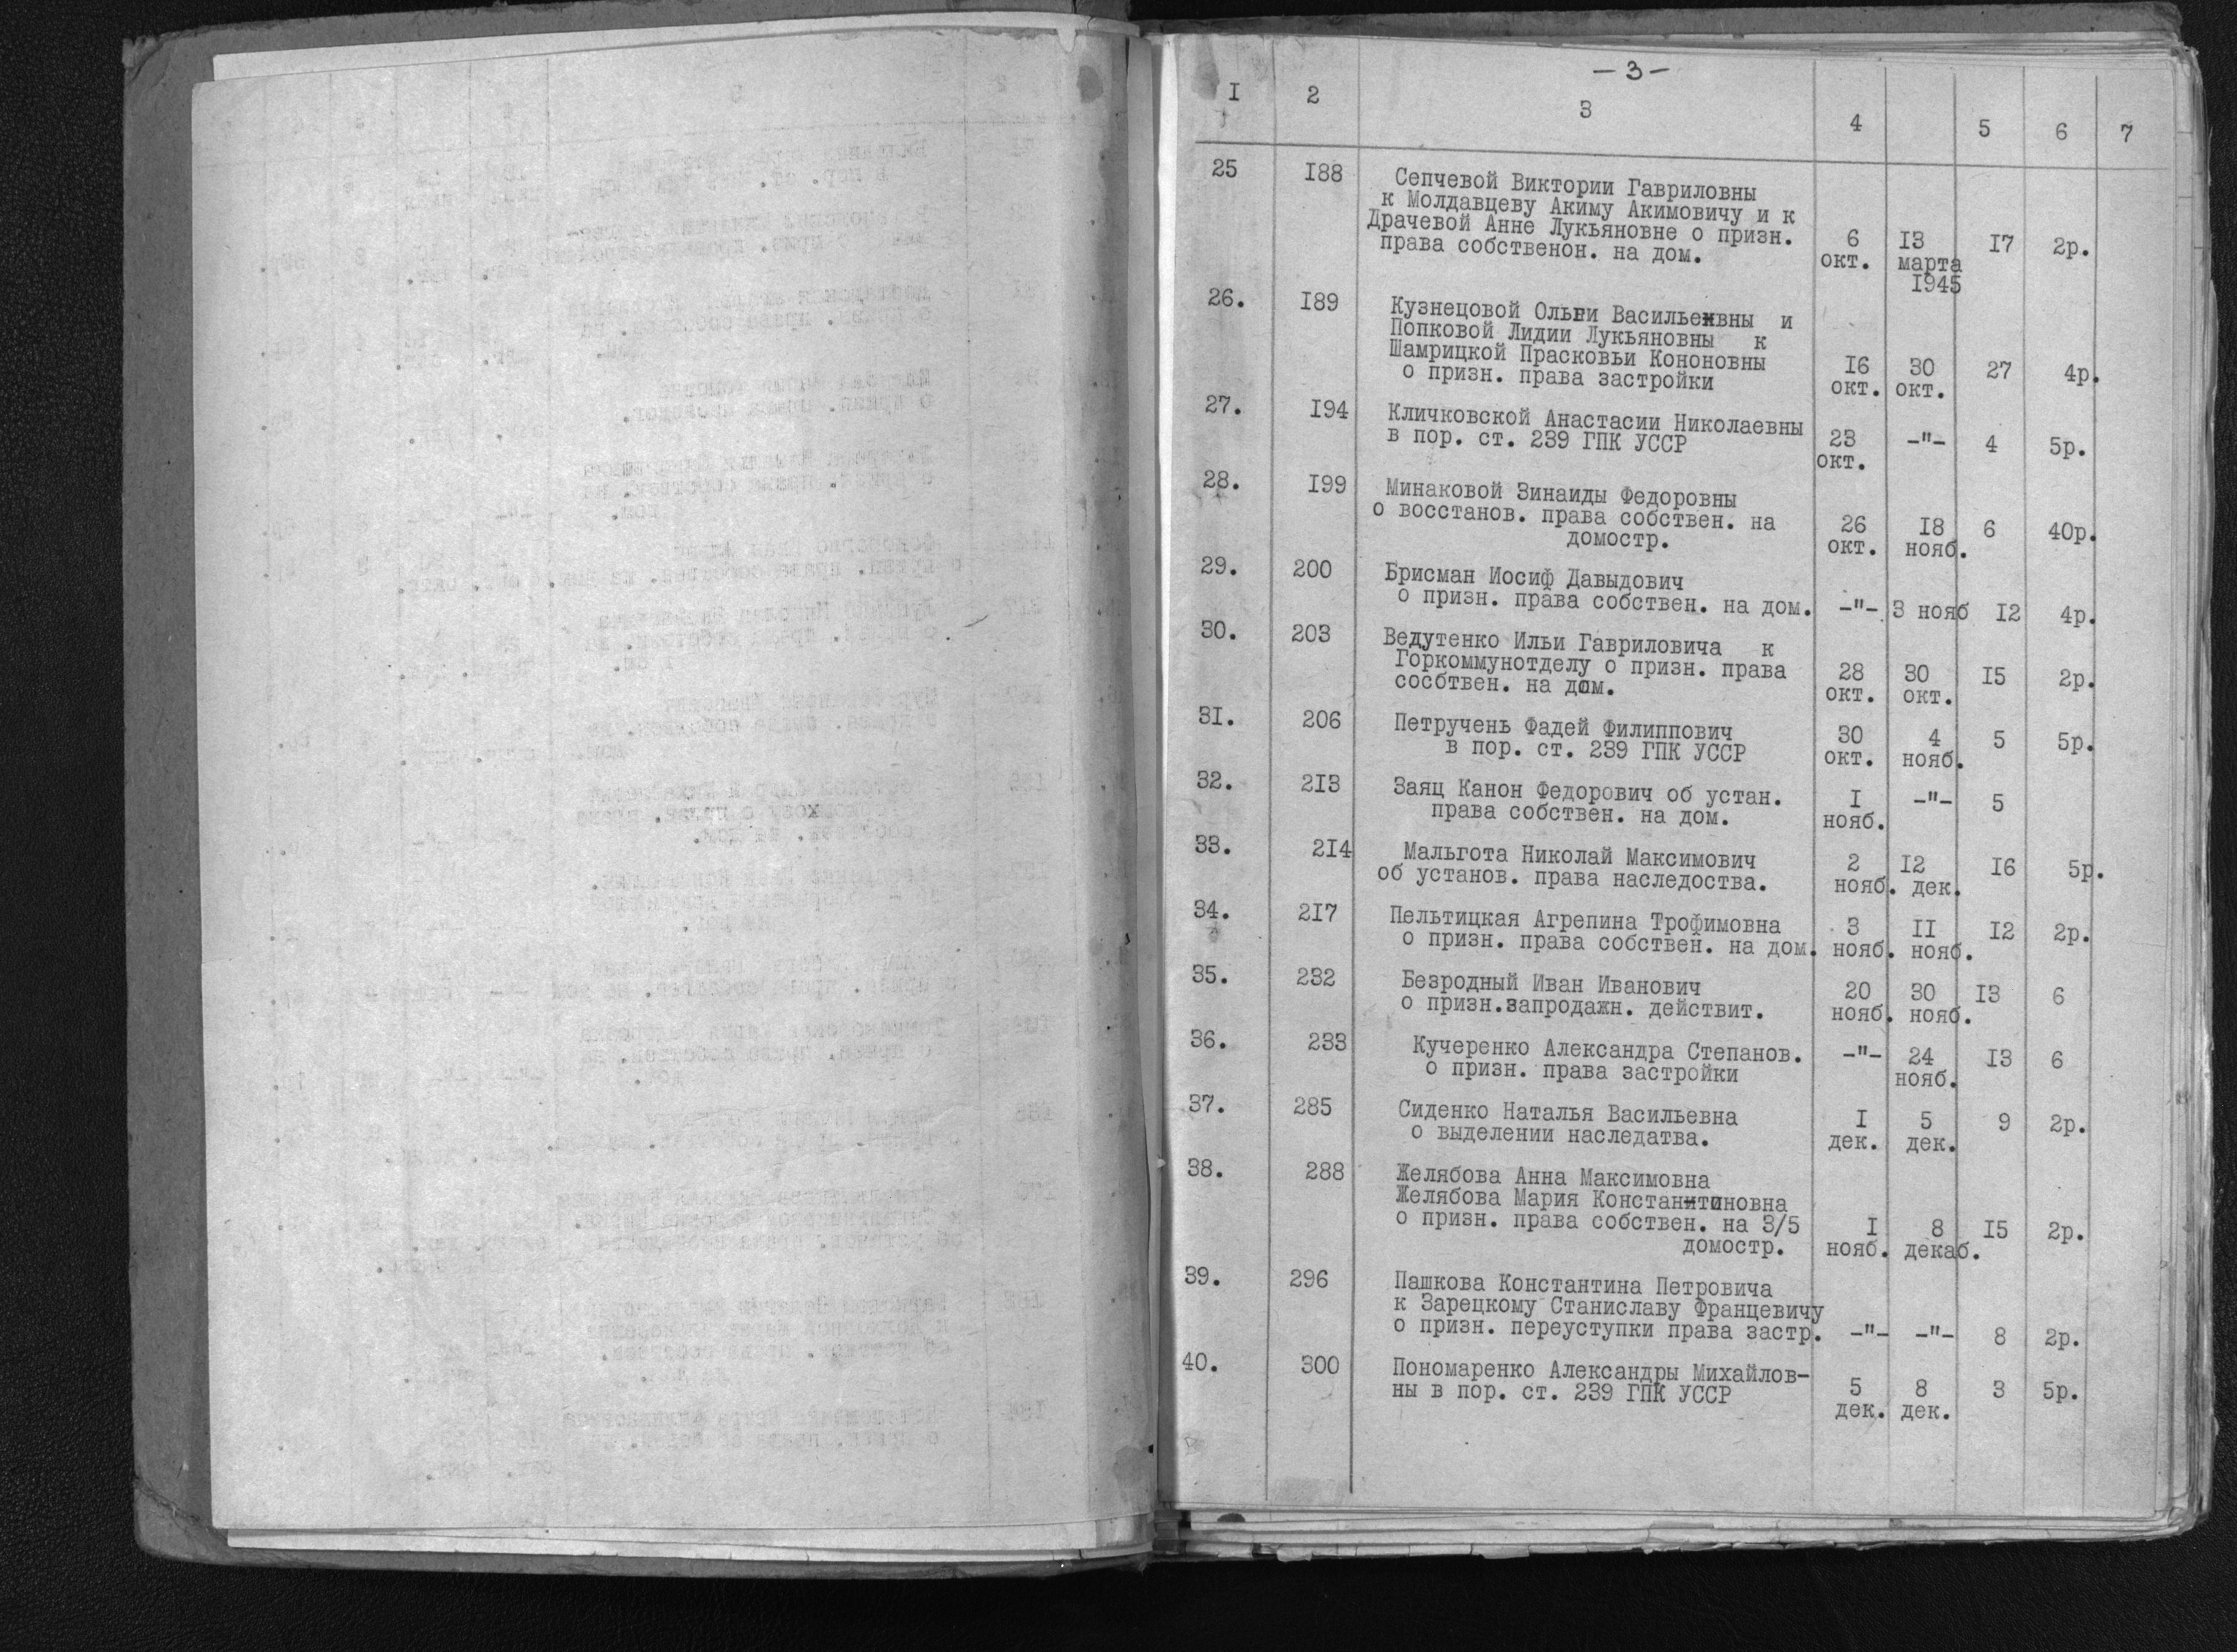 -3-
I 2 3 4 5 6 7
25 I88 Сепчевой Виктории Гавриловны
к Молдавцеву Акиму Акимовичу и к
Драчевой Анне Лукьяновне о призн.
права собственон. на дом. 6 I3 I7 2р.
окт. марта
I945
26. I89 Кузнецовой Ольги Васильевны и
Попковой Лидии Лукьяновны к
Шамрицкой Прасковьи Кононовны
о призн. права застройки I6 30 27 4р.
окт. окт.
27. I94 Кличковской Анастасии Николаевны
в пор. ст. 239 ГПК УССР 23 -"- 4 5р.
окт.
28. I99 Минаковой Зинаиды Федоровны
о восстанов. права собствен. на
домостр. 26 I8 6 40р.
окт. нояб.
29. 200 Брисман Иосиф Давыдович
о призн. права собствен. на дом. -"- 3 нояб I2 4р.
30. 203 Ведутенко Ильи Гавриловича к
Горкоммунотделу о призн. права
сосбтвен. на дом. 28 30 I5 2р.
окт. окт.
31. 206 Петручень Фадей Филиппович
в пор. ст. 239 ГПК УССР 30 4 5 5р.
окт. нояб.
32. 2I3 Заяц Канон Федорович об устан.
права собствен. на дом. I -"- 5
нояб.
33. 2I4 Мальгота Николай Максимович
об установ. права наследоства. 2 I2 I6 5р.
нояб. дек.
34. 2I7 Пельтицкая Агрепина Трофимовна
о призн. права собствен. на дом. 3 II I2 2р.
нояб. нояб.
35. 232 Безродный Иван Иванович
о призн.запродажн. действит. 20 30 I3 6
нояб. нояб.
36. 233 Кучеренко Александра Степанов.
о призн. права застройки -"- 24 I3 6
нояб.
37. 285 Сиденко Наталья Васильевна
о выделении наследатва. I 5 9 2р.
дек. дек.
38. 288 Желябова Анна Максимовна
Желябова Мария Константиновна
о призн. права собствен. на 3/5
домостр. I 8 I5 2р.
нояб. декаб.
39. 296 Пашкова Константина Петровича
к Зарецкому Станиславу Францевичу
о призн. переуступки права застр. -"- -"- 8 2р.
40. 300 Пономаренко Александры Михайлов-
ны в пор. ст. 239 ГПК УССР 5 8 3 5р.
дек. дек.